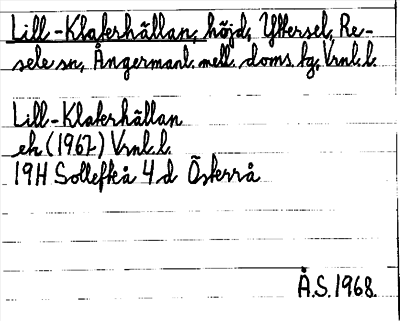 Lill-Klaterhällan, höjd, Yttersel, Re-
sele sn, Ångermanl. mell. doms. fg, Vrnl. l.
Lill-Klaterhällan
ek (1967) Vrnl. l.
19H Sollefteå 4 d Österrå
Å.S. 1968.